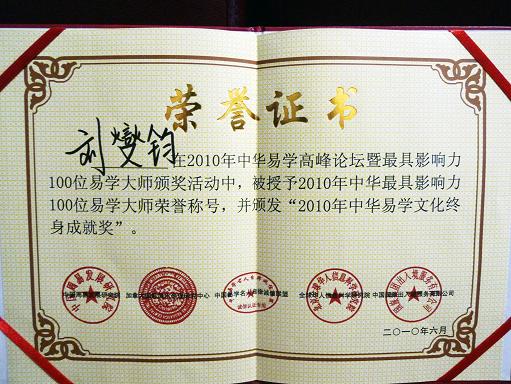 荣誉证书
刘燮钧
在2010年中华易学高峰论坛暨最具影响力
100位易学大师颁奖活动中，被授予2010年中华最具影响力
100位易学大师荣誉称号，并颁发“2010年中华易学文化终
身成就奖”。
二〇一〇年六月